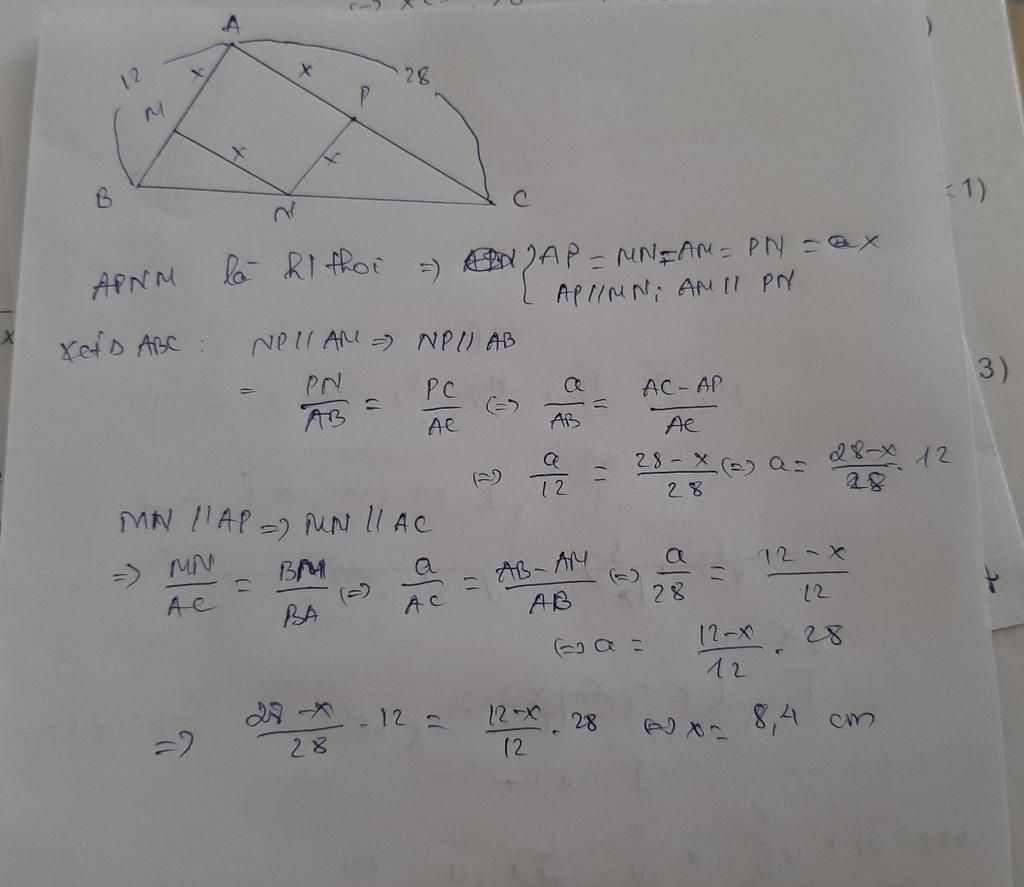 A
12
x
x
28
M
P
x
x
B
N
C
APNM là h/thoi => { AP = MN = AM = PN = x
AP // MN; AM // PN
Xét Δ ABC: NP // AM => NP // AB
= PN/AB = PC/AC (=) a/AB = AC - AP/AC
(=) a/12 = 28 - x/28 (=) a = 28-x/28 . 12
MN // AP => MN // AC
=> MN/AC = BM/BA (=) a/AC = AB - AM/AB (=) a/28 = 12 - x/12
(=) a = 12-x/12 . 28
=> 28 - x/28 . 12 = 12-x/12 . 28 (=) x = 8,4 cm
1)
3)